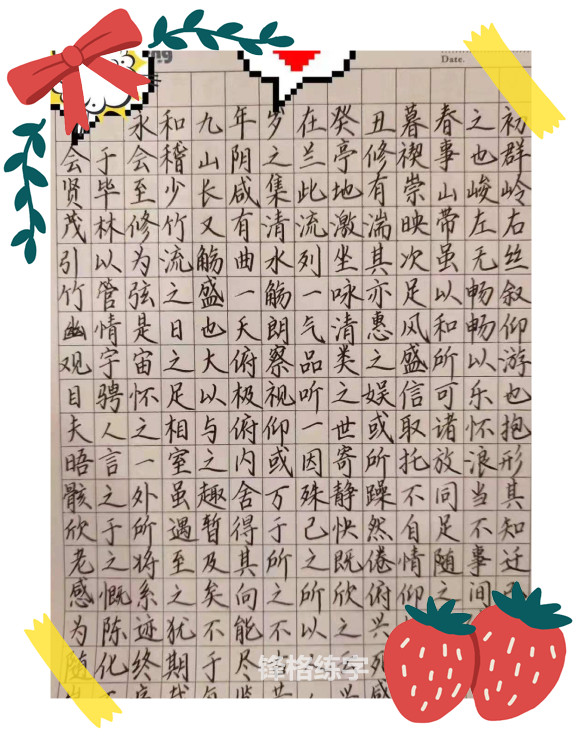 Date.
永和九年岁在癸丑暮春之初
会于会稽山阴之兰亭修禊事也群
贤毕至少长咸集此地有崇山峻岭
茂林修竹又有清流激湍映带左右
引以为流觞曲水列坐其次虽无丝
竹管弦之盛一觞一咏亦足以畅叙
幽情是日也天朗气清惠风和畅仰
观宇宙之大俯察品类之盛所以游
目骋怀足以极视听之娱信可乐也
夫人之相与俯仰一世或取诸怀抱
晤言一室之内或因寄所托放浪形
骸之外虽趣舍万殊静躁不同当其
欣于所遇暂得于己快然自足不知
老之将至及其所之既倦情随事迁
感慨系之矣向之所欣俯仰之间
为陈迹犹不能不以之兴
随化终期于尽
锋格练字